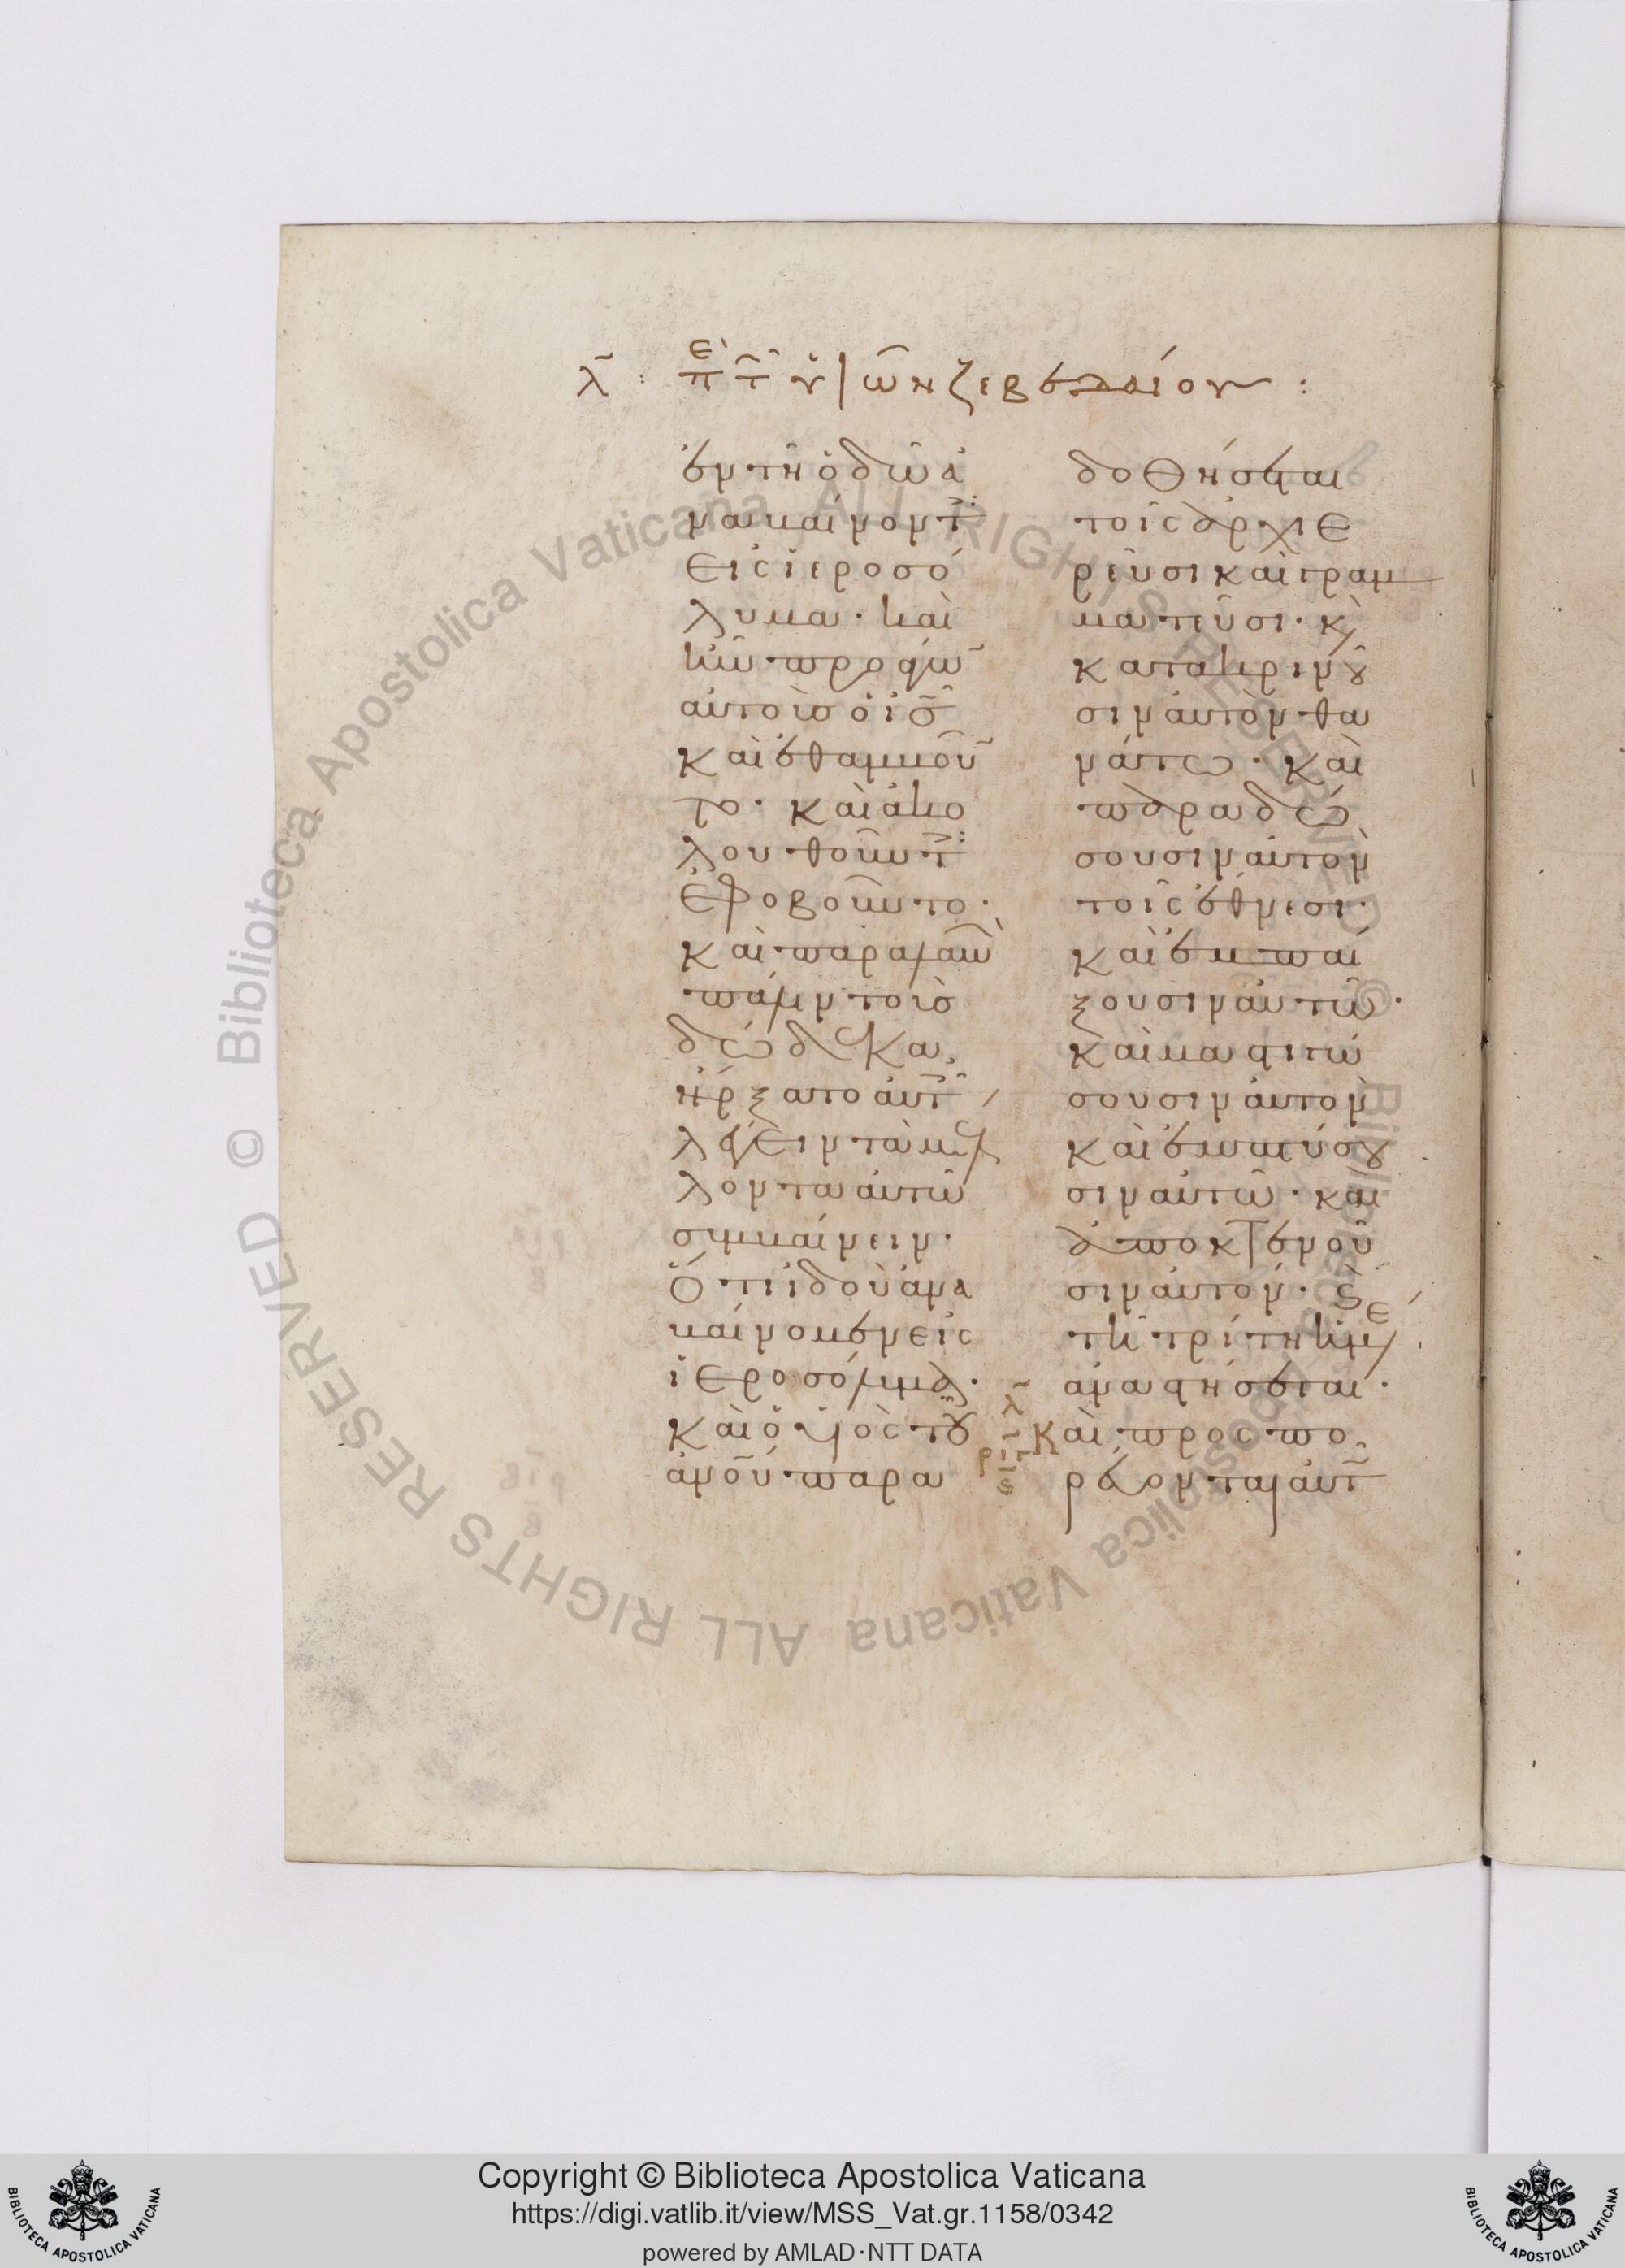 λ̄ : πὲ τ̑ υἱῶν ζεβεδαίου :
ἐν τῆ ὁδῶ ἀ
ναβαίνοντ̑
εἰς ἱεροσό
λυμα· καὶ
ἦν προάγω̄
αὐτοὺσ ὁ ισ̄
καὶ ἐθαμβοῦ̄
το· καὶ ἀκο
λουθοῦντ̑
ἐφοβοῦντο·
καὶ παραλαβὼ̄
πάλιν τοὺσ
δώδεκα,
ἤρξατο αὐτ̑
λέγειν τὰ μέλ
λοντα αὐτῶ
συμβαίνειν·
Ὅτι ἰδοὺ ἀνα
βαίνομεν εἰς
ἱεροσόλυμα·
καὶ ὁ υἱὸς τοῦ
ἀνου̅ παρα
δοθήσεται
τοῖς ἀρχιε
ρεῦσι καὶ γραμ
ματεῦσι· κ̀
κατακρινοῦ
σιν αὐτὸν θα
νάτω· καὶ
παραδώ
σουσιν αὐτὸν
τοῖς ἔθνεσι·
καὶ ἐμπαί
ξουσιν αὐτῶ·
καὶ μαστιγώ
σουσιν αὐτὸν
καὶ ἐμπτύσου
σιν αὐτῶ· καὶ
ἀποκτενοῦ
σιν αὐτόν· ϛ̀
τῆ τρίτη ἡμέ
ἀναστήσεται·
λ̄
Καὶ προσπο
ρεύονται αὐτ̄
Copyright © Biblioteca Apostolica Vaticana
https://digi.vatlib.it/view/MSS_Vat.gr.1158/0342
powered by AMLAD·NTT DATA
BIBLIOTECA APOSTOLICA VATICANA
BIBLIOTECA APOSTOLICA VATICANA
© Biblioteca Apostolica Vaticana ALL RIGHTS RESERVED
© Biblioteca Apostolica Vaticana ALL RIGHTS RESERVED